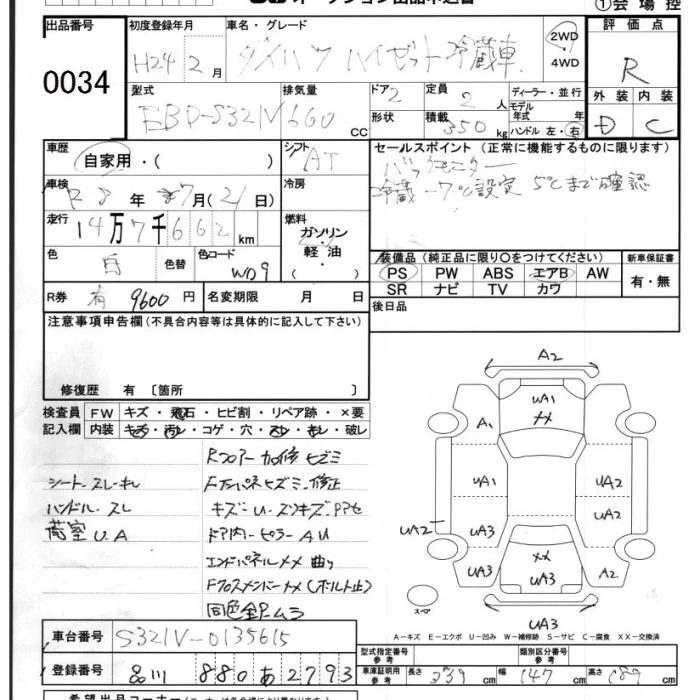 ①会場控
出品番号 初度登録年月 車名・グレード 評価点
0034 H24年2月 ダイハツ ハイゼット冷蔵車 2WD・4WD R
型式 排気量 ドア2 定員 2人 ディーラー・並行 外装 内装
EBD-S321V 660cc 形状 積載 350kg モデル年式 年 ハンドル 左・右 D C
車歴 シフト セールスポイント (正常に機能するものに限ります)
自家用・( ) AT バックモニター
車検 冷房 冷蔵-7℃設定 5℃まで確認
R8年7月(21)日
走行 14万7千662km 燃料
ガソリン・軽油・( )
色 白 色替 色コード W09 装備品 (純正品に限り○をつけてください) 新車保証書
PS PW ABS エアB AW 有・無
R券 有 9600円 名変期限 月 日 SR ナビ TV カワ
注意事項申告欄 (不具合内容等は具体的に記入して下さい) 後日品
修復歴 有 〔箇所 〕
検査員 FW キズ・飛石・ヒビ割・リペア跡・×要
記入欄 内装 キズ・汚レ・コゲ・穴・スレ・キレ・破レ
Rフロアー加修ヒズミ
シート.スレ・キレ Fカパネヒズミ.修正
ハンドル.スレ キズ・U・スリキズ.Pアセ
荷室 U.A ドア内・ピラー AU
エンドパネルメメ曲り
Fクロスメンバーメメ(ボルト止)
同色全塗ムラ
A2
UA1
XX
A1
UA1 UA2
UA2
UA2 UA3
XX
UA3 UA3 A2
スペア
UA3
A-キズ E-エクボ U-凹み W-補修跡 S-サビ C-腐食 XX-交換済
車台番号 S321V-0135615
型式指定番号 参考 類別区分番号 参考
登録番号 品川 880 あ 2793
車庫証明用参考 長さ 339cm 幅 147cm 高さ 189cm
希望出品コーナー